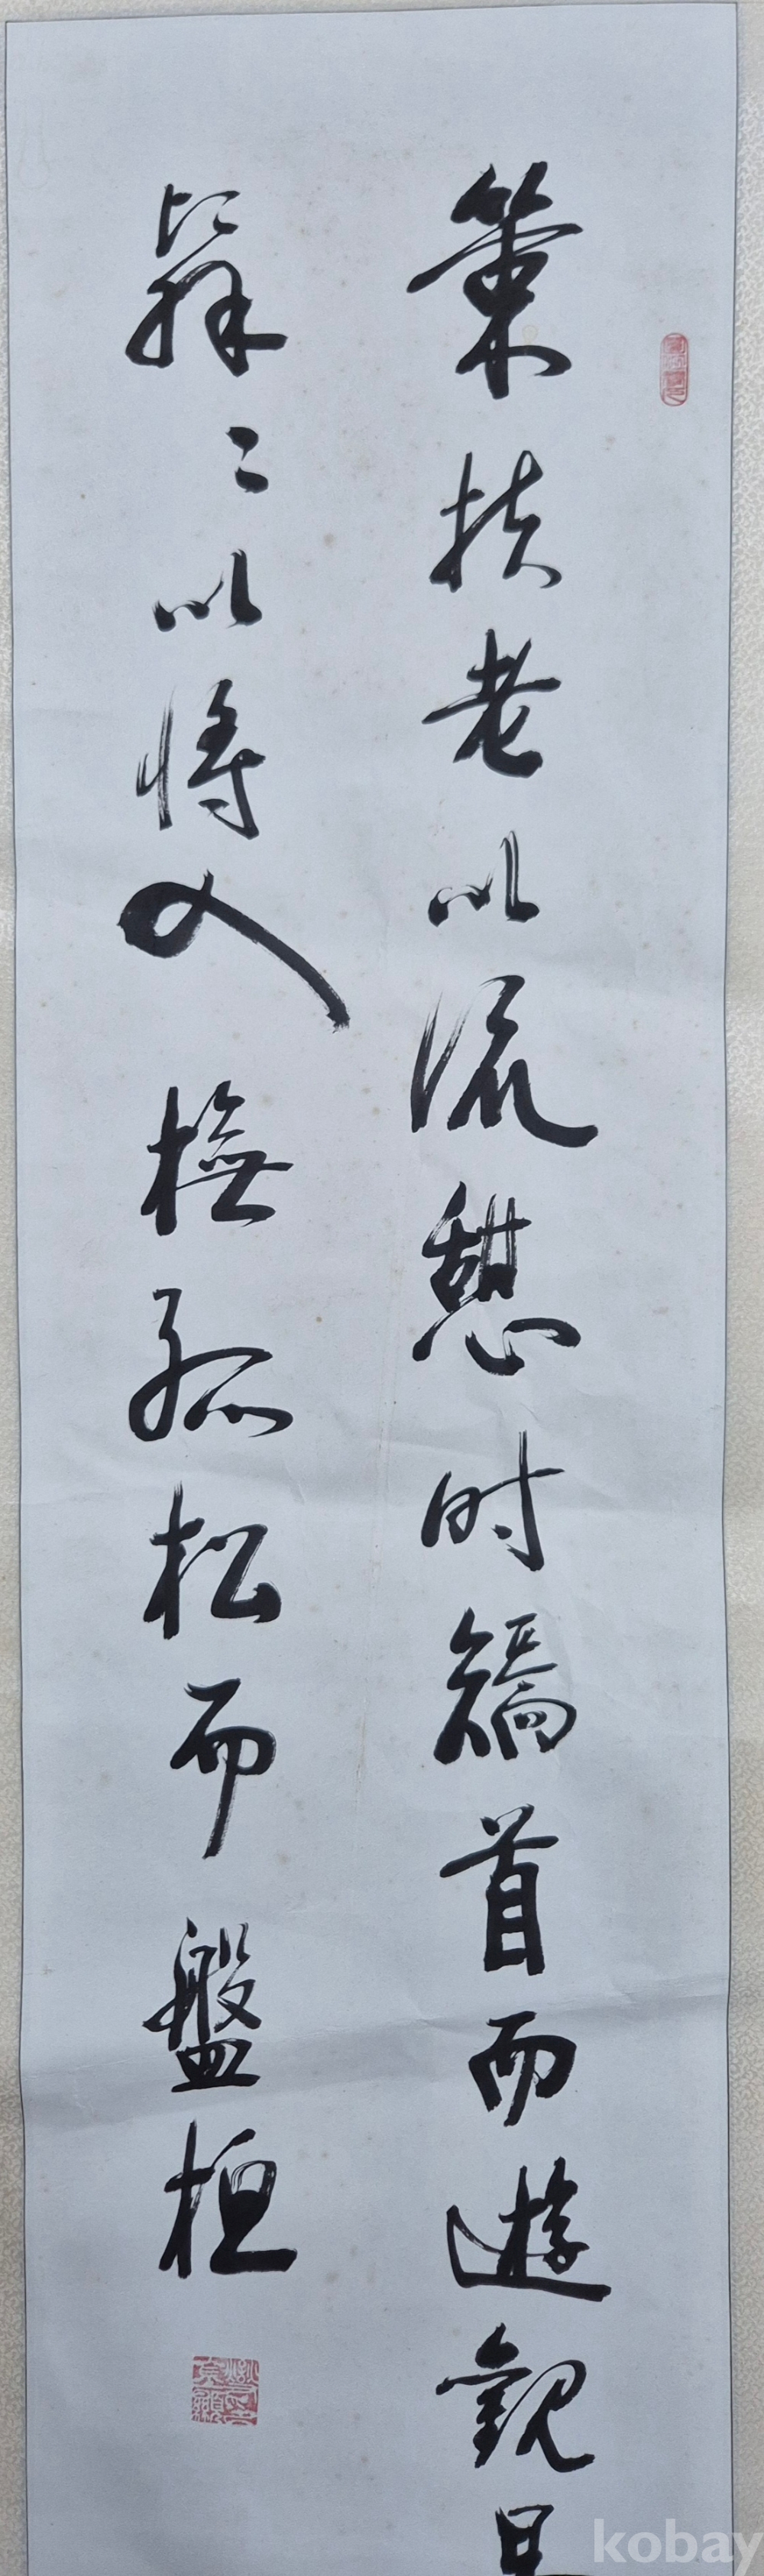 策扶老以流憩時矯首而遊觀景
翳〻以将入撫孤松而盤桓
kobay